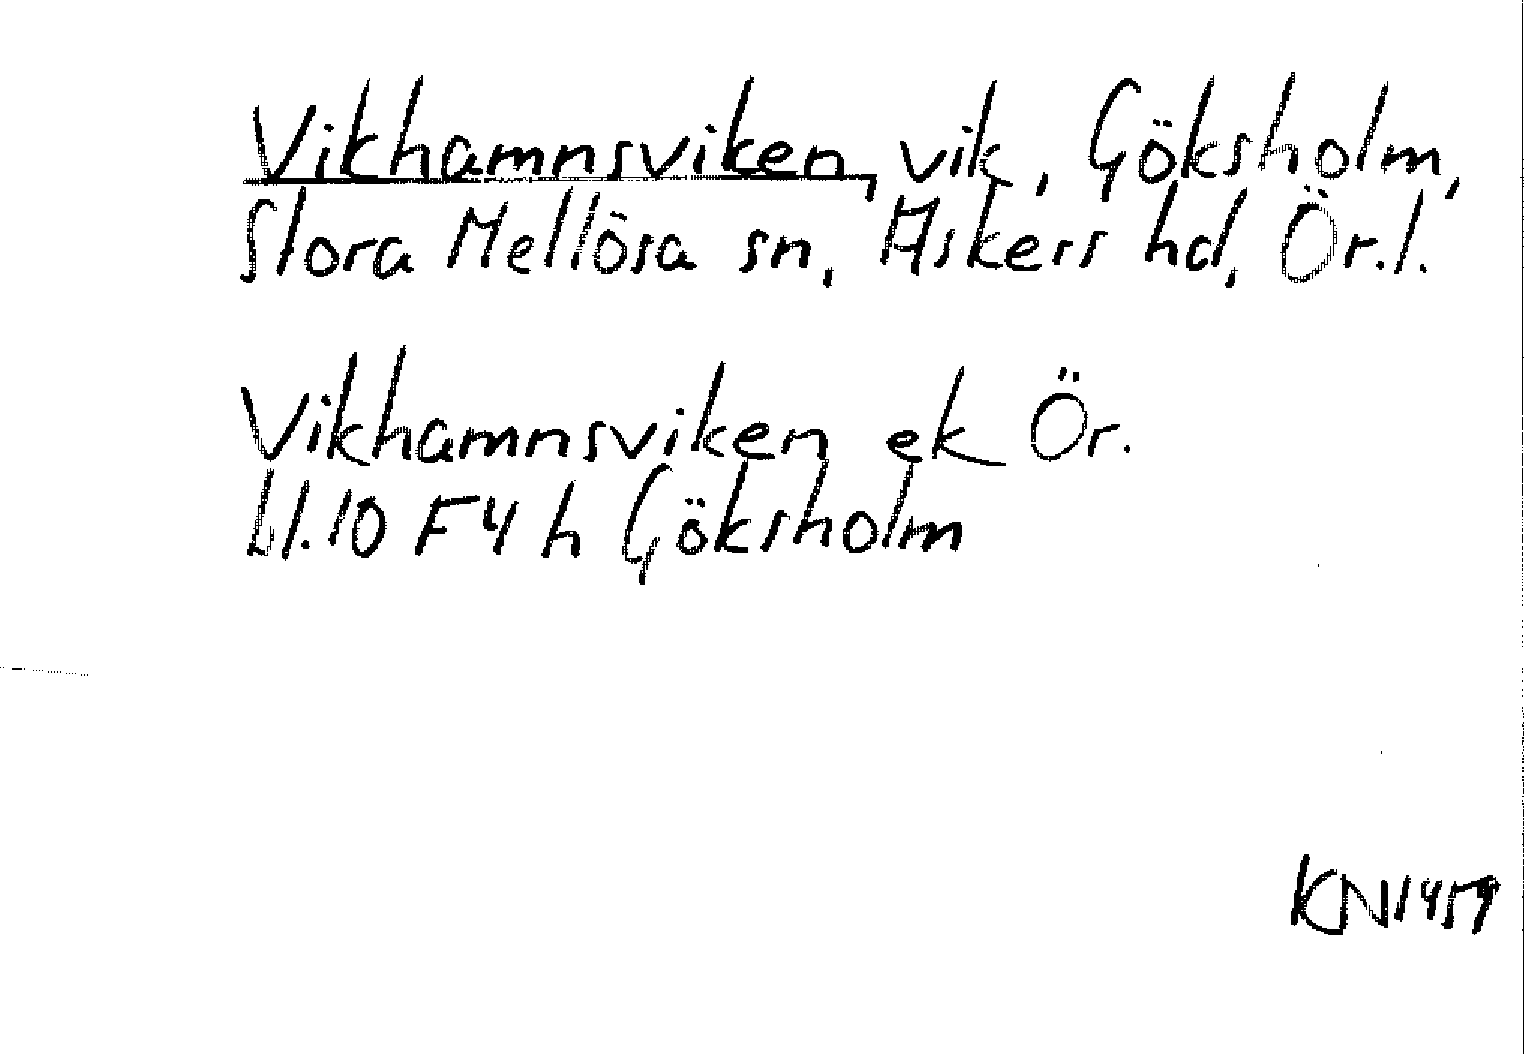 Vikhamnsviken, vik, Göksholm,
Stora Mellösa sn, Askers hd, Ör.l.
Vikhamnsviken ek Ör.
bl.10 F4 h Göksholm
KN1459